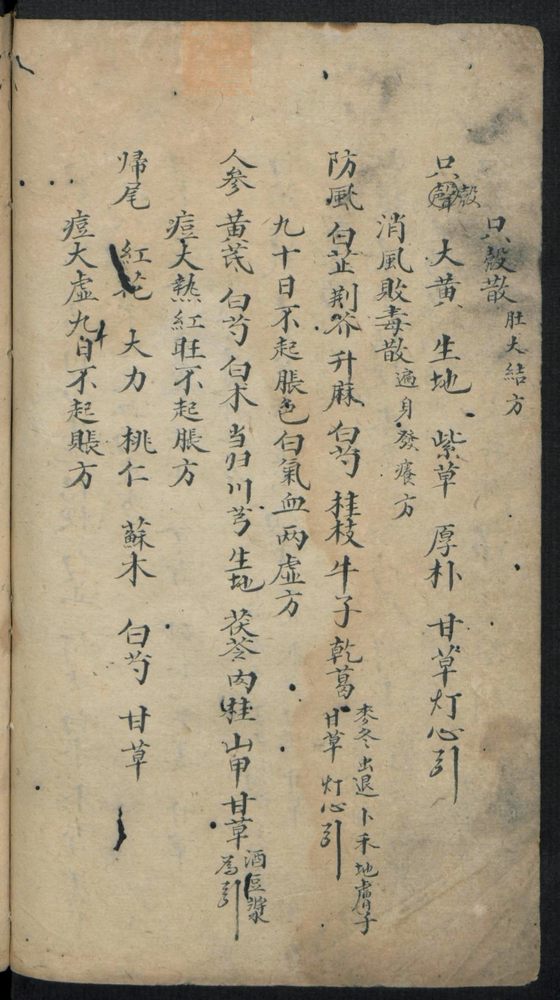 只殼散 肚大結方
只殼 大黄 生地 紫草 厚朴 甘草 灯心引
消風敗毒散 遍身發癢方
防風 白芷 荆芥 升麻 白芍 桂枝 牛子 乾葛 麥冬 虫退 卜禾 地膚子 甘草 灯心引
九十日不起脹色白氣血两虛方
人参 黄芪 白芍 白朮 当归 川芎 生地 茯苓 肉桂 山甲 甘草 酒豆漿為引
痘大熱紅旺不起脹方
帰尾 紅花 大力 桃仁 蘇木 白芍 甘草
痘大虛九日不起賬方